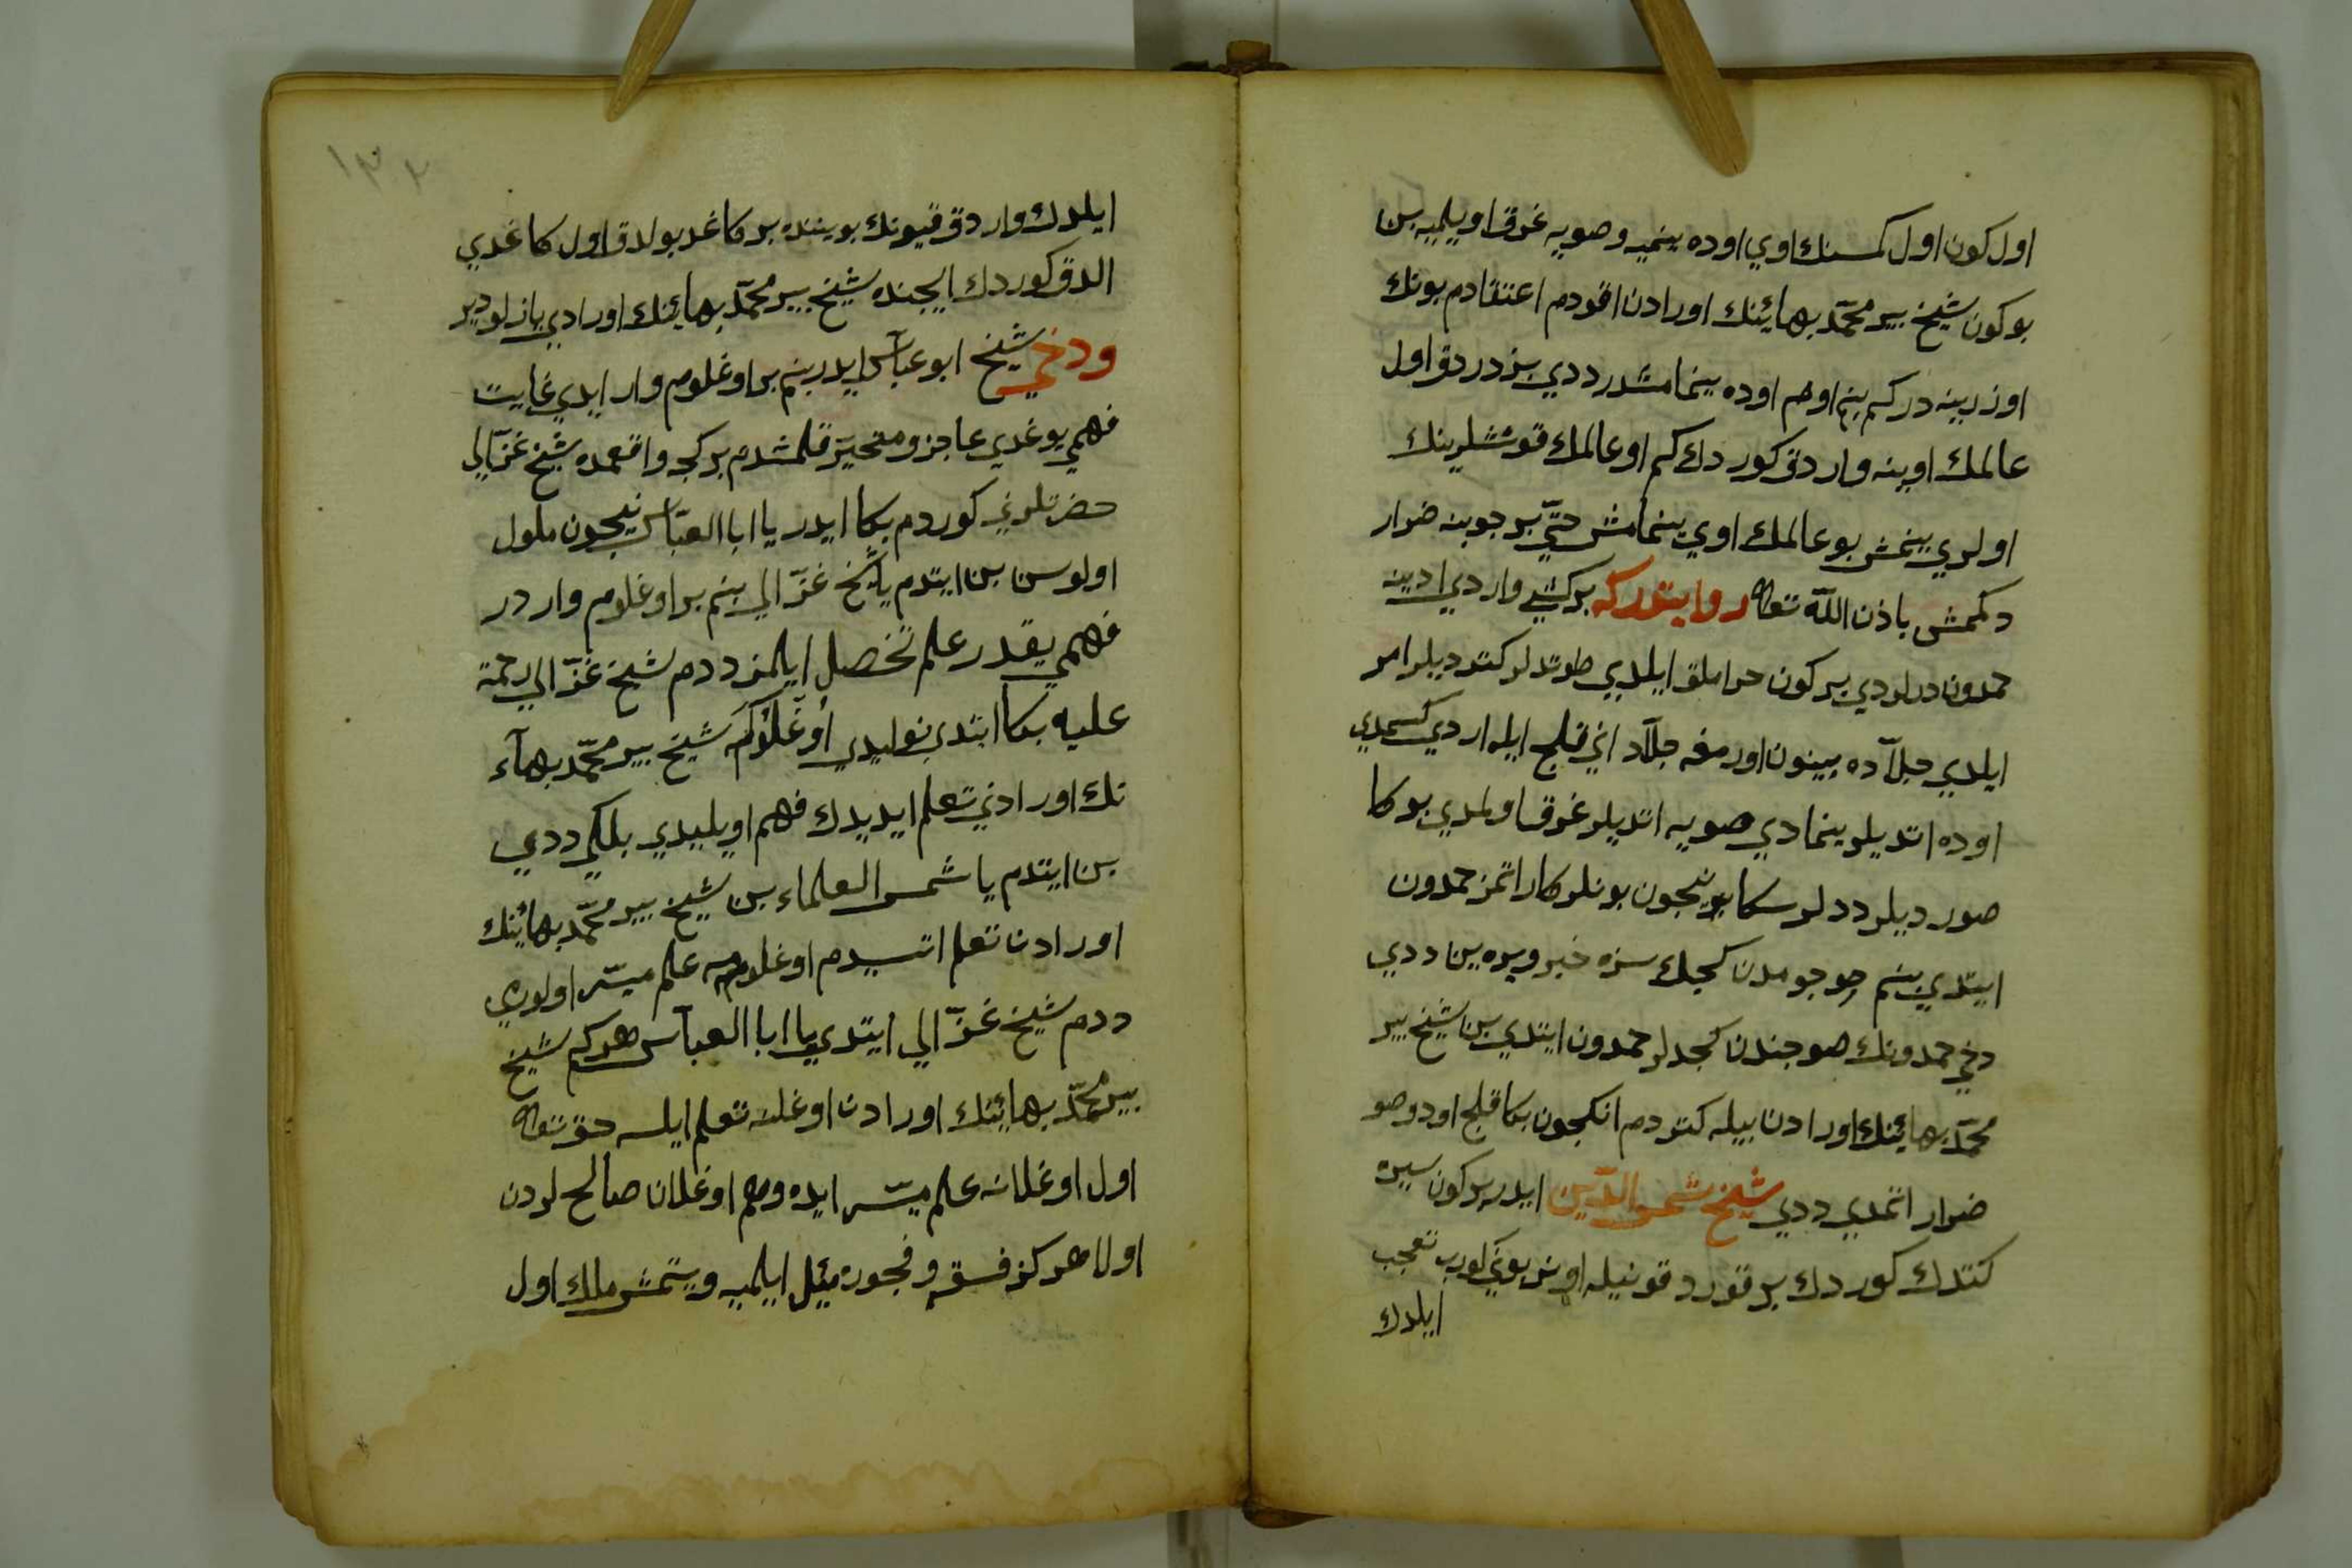 اول كون اول كمسنك اوي اوده ينميه و صويه غرق اويلميه بن
بو كون شيخ پير محمّد بهائينك اورادن اقودم اعتقادم بونك
اوزرينه در كم بنم اوم اوده ينمامشدر ددي بز دردق اول
عالمك اوينه واردق كوردك كم او عالمك قوڭشلرينك
اولري ينمش بو عالمك اوي ينمامش حتّي بر چوبنه ضرار
دكمش باذن اللّه تعالى روايتدر كه بر كشي واردي ادينه
حمدون درلردي بر كون حراملق ايلدي طوتدلر كتورديلر امر
ايلدي جلّاده بينون اورمغه جلّاد اني قلج ايله اردي كسمدي
اوده اتديلر ينمادي صويه اتديلر غرق اولمدي بوكا
صورديلر ددلر سكا نيجون بونلر كار اتمز حمدون
ايتدي بنم صوجومدن كجك سزه خبر ويره ين ددي
دخي حمدونك صوجندن كجدلر حمدون ايتدي بن شيخ پير
محمّد بهائينك اورادن بيله كتوردم انكجون بكا قلج اود و صو
ضرار اتمدي ددي شيخ شمس الدّين ايدر بر كون سيره
كتدك كوردك بر قورد قونيله اوينر بوني كورب تعجب
ايلدك
١٣٢
ايلدك واردق قيونك بويننده بر كاغد بولدق اول كاغدي
الدق كوردك ايچنده شيخ پير محمّد بهائينك اورادي يازلودير
ودخي شيخ ابو عبّاس ايدر بنم بر اوغلوم وار ايدي غايت
فهمي يوغدي عاجز و متحيّر قلمشدم بر كجه واقعمده شيخ غزّالي
حضرتلرني كوردم بكا ايدر يا ابا العبّاس نيجون ملول
اولوسن بن ايتدم يا شيخ غزّالي بنم بر اوغلوم واردر
فهمي يقدر علم تحصل ايلمز ددم شيخ غزّالي رحمة
عليه بكا ايتدي نوليدي اوغلوكه شيخ پير محمّد بهآء
نك اورادني تعلم ايديدك فهم اويليدي بلكي ددي
بن ايتدم يا شمس العلماء بن شيخ پير محمّد بهائينك
اورادن تعلم اتسيدم اوغلومه علم ميسّر اولورمي
ددم شيخ غزّالي ايتدي يا ابا العبّاس هر كم شيخ
پير محمّد بهائينك اورادن اوغلنه تعلم ايلسه حق تعالى
اول اوغلانه علم ميسّر ايده وهم اوغلان صالحلردن
اولا هر كز فسقه و فجوره ميئل ايلميه و يتمش ملك اول